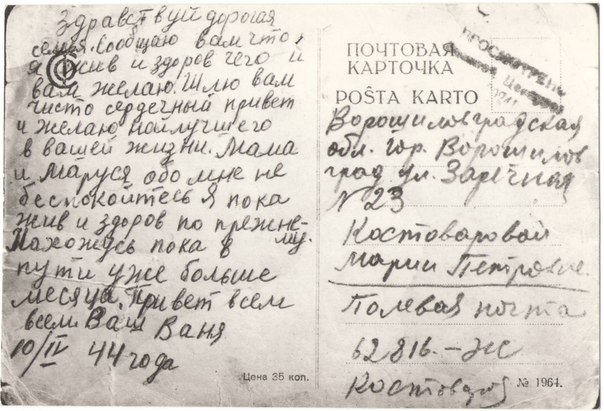 Здравствуй дорогая
семья. Сообщаю вам что
я жив и здоров чего и
вам желаю. Шлю вам
чисто сердечный привет
и желаю наилучшего
в вашей жизни. Мама
и Маруся обо мне не
беспокойтесь Я пока
жив и здоров по прежне-
му.
Нахожусь пока в
пути уже больше
месяца. Привет всем
всем. Ваш Ваня
10/IV 44 года
Цена 35 коп.
ПОЧТОВАЯ
КАРТОЧКА
POŠTA KARTO
ПРОСМОТРЕНО
Ворошиловградская
обл. гор. Ворошилов
град ул. Заречная
№ 23
Костоваровой
Марии Петровне
Полевая почта
62816.-Ж
Костоваров
№ 1964.